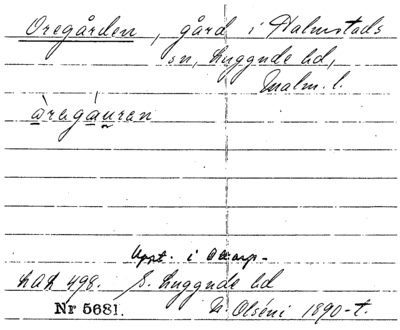 Oregården, gård i Halmstads
sn, Luggude hd,
Malm. l.
òragáuran
Uppt. i
LAL 498. S. Luggude hd
Nr 5681. N. Olséni 1890-t.